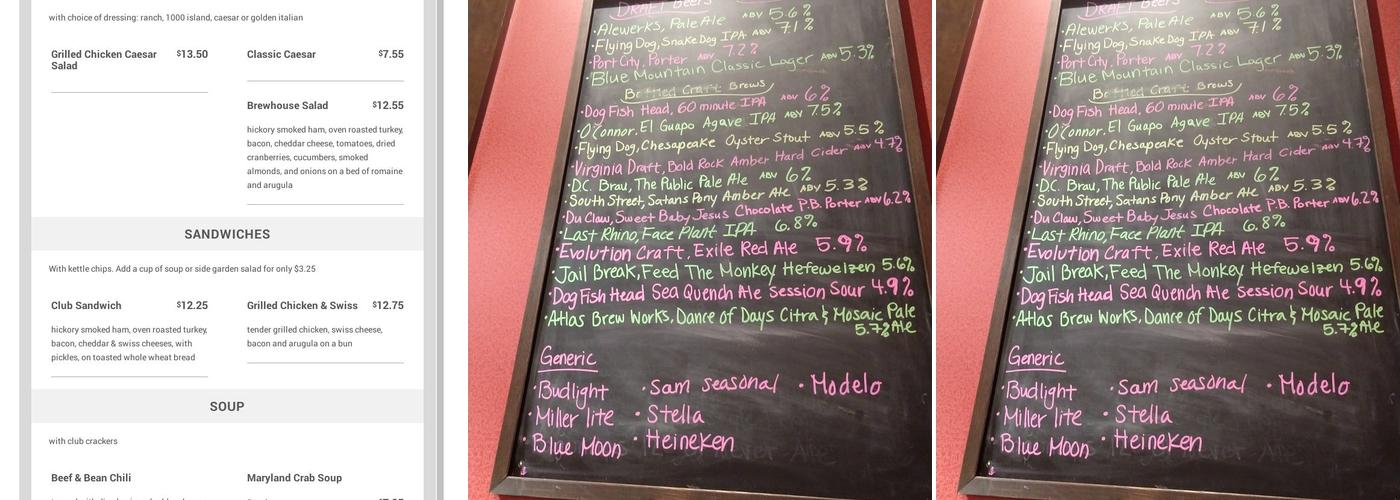 with choice of dressing: ranch, 1000 island, caesar or golden italian
Grilled Chicken Caesar Salad $13.50
Classic Caesar $7.55
Brewhouse Salad $12.55
hickory smoked ham, oven roasted turkey,
bacon, cheddar cheese, tomatoes, dried
cranberries, cucumbers, smoked
almonds, and onions on a bed of romaine
and arugula
SANDWICHES
With kettle chips. Add a cup of soup or side garden salad for only $3.25
Club Sandwich $12.25
hickory smoked ham, oven roasted turkey,
bacon, cheddar & swiss cheeses, with
pickles, on toasted whole wheat bread
Grilled Chicken & Swiss $12.75
tender grilled chicken, swiss cheese,
bacon and arugula on a bun
SOUP
with club crackers
Beef & Bean Chili
Maryland Crab Soup
Draft Beers
·Alewerks, Pale Ale ABV 5.6%
·Flying Dog, Snake Dog IPA ABV 7.1%
·Port City, Porter ABV 7.2%
·Blue Mountain Classic Lager ABV 5.3%
Craft Brews
·Dog Fish Head, 60 minute IPA ABV 6%
·O'Connor, El Guapo Agave IPA ABV 7.5%
·Flying Dog, Chesapeake Oyster Stout ABV 5.5%
·Virginia Draft, Bold Rock Amber Hard Cider ABV 4.7%
·DC. Brau, The Public Pale Ale ABV 6%
·South Street, Satans Pony Amber Ale ABV 5.3%
·Du Claw, Sweet Baby Jesus Chocolate P.B. Porter ABV 6.2%
·Last Rhino, Face Plant IPA 6.8%
·Evolution Craft, Exile Red Ale 5.9%
·Jail Break, Feed The Monkey Hefeweizen 5.6%
·Dog Fish Head Sea Quench Ale Session Sour 4.9%
·Atlas Brew Works, Dance of Days Citra & Mosaic Pale
5.7% Ale
Generic
·Budlight ·Sam seasonal ·Modelo
·Miller lite ·Stella
·Blue Moon ·Heineken
Draft Beers
·Alewerks, Pale Ale ABV 5.6%
·Flying Dog, Snake Dog IPA ABV 7.1%
·Port City, Porter ABV 7.2%
·Blue Mountain Classic Lager ABV 5.3%
Craft Brews
·Dog Fish Head, 60 minute IPA ABV 6%
·O'Connor, El Guapo Agave IPA ABV 7.5%
·Flying Dog, Chesapeake Oyster Stout ABV 5.5%
·Virginia Draft, Bold Rock Amber Hard Cider ABV 4.7%
·DC. Brau, The Public Pale Ale ABV 6%
·South Street, Satans Pony Amber Ale ABV 5.3%
·Du Claw, Sweet Baby Jesus Chocolate P.B. Porter ABV 6.2%
·Last Rhino, Face Plant IPA 6.8%
·Evolution Craft, Exile Red Ale 5.9%
·Jail Break, Feed The Monkey Hefeweizen 5.6%
·Dog Fish Head Sea Quench Ale Session Sour 4.9%
·Atlas Brew Works, Dance of Days Citra & Mosaic Pale
5.7% Ale
Generic
·Budlight ·Sam seasonal ·Modelo
·Miller lite ·Stella
·Blue Moon ·Heineken